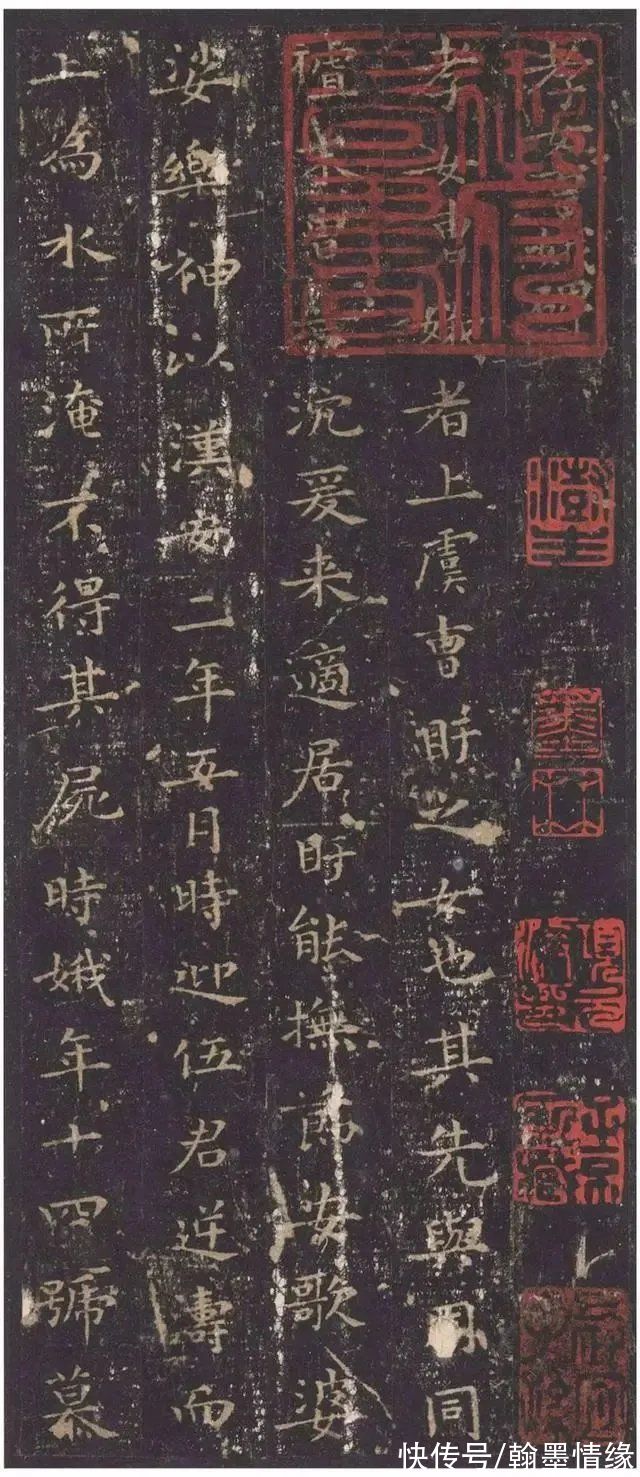 孝女曹娥碑
孝女曹娥者上虞曹盱之女也其先與周同
沉爰来適居盱能撫節安歌婆
娑樂神以漢安二年五月時迎伍君逆濤而
上為水所淹不得其屍時娥年十四號慕
快传号/翰墨情缘